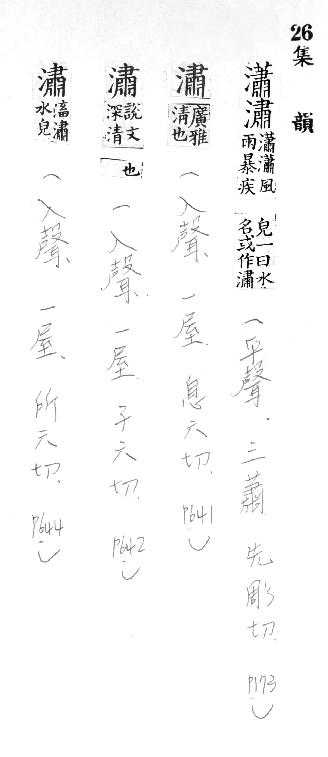 26 集韻
瀟潚 瀟瀟風雨暴疾皃一曰水名或作潚(平聲.三蕭 先彫切.P173)
潚 廣雅清也(入聲.一屋.息六切.P641)
潚 說文深清也(入聲.一屋.子六切.P642)
潚 滀潚水皃(入聲.一屋.所六切.P644)